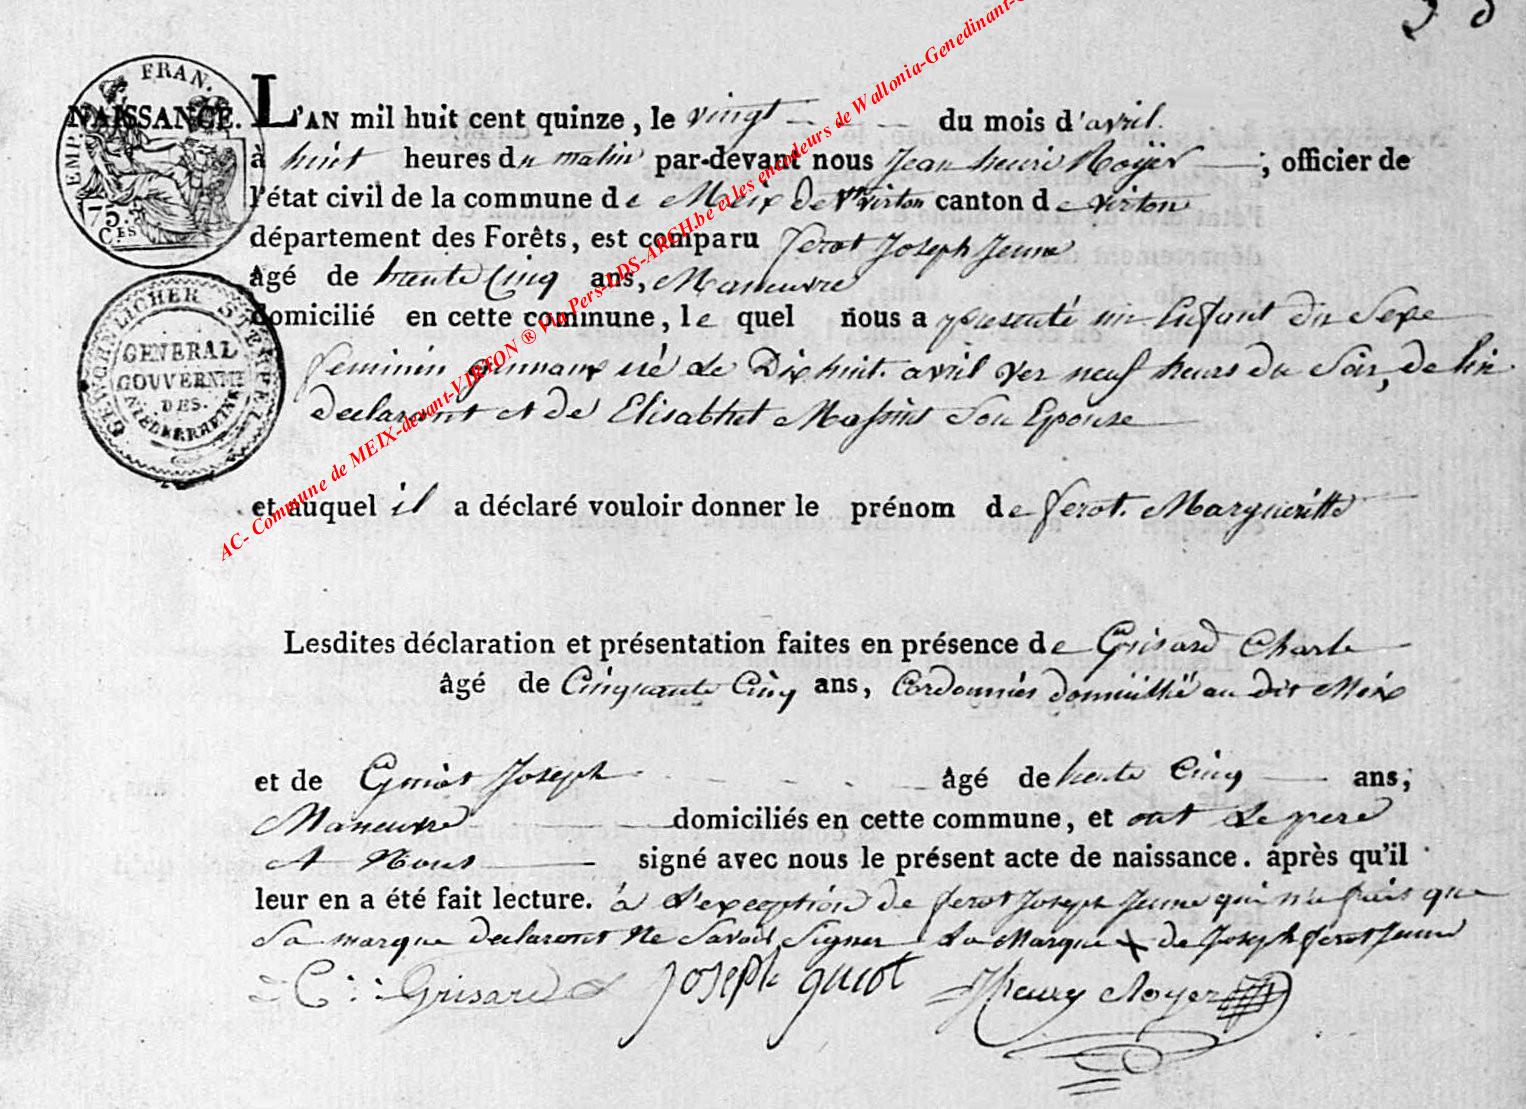 38
EMP. FRAN.
75.
C.ES
GENERAL
GOUVERNEMT
DES
NIEDERRHEINS
STEMPEL
AC- Commune de MEIX-devant-VIRTON ® Via Pers-LDS-ARCH.be et les encodeurs de Wallonia-Genedinant-
NAISSANCE. L'AN mil huit cent quinze, le vingt du mois d'avril.
à huit heures du matin par-devant nous Jean henri Royer ; officier de
l'état civil de la commune de Meix devt virton canton de virton
département des Forêts, est comparu ferot Joseph Jeune
âgé de trente Cinq ans, Maneuvre
domicilié en cette commune, le quel nous a presenté un Enfant du Sexe
feminin né le Dix huit avril ver neuf heurs du Soir, de lui
declaront et de Elisabhet Son Epouse
et auquel il a déclaré vouloir donner le prénom de ferot. Margueritte
Lesdites déclaration et présentation faites en présence de Grisard Charle
âgé de Cinquante Cinq ans, Cordonnier domicillié au dit Meix
et de Guiot Joseph âgé de trente Cinq ans,
Maneuvre domiciliés en cette commune, et ont le pere
et Nous signé avec nous le présent acte de naissance. après qu'il
leur en a été fait lecture. à l'exeption de ferot Joseph Jeune qui n'a fait que
Sa marque declaront ne Savoir Signer La Marque X de Joseph ferot Jeune
C: Grisard Joseph guiot JHenry Royer